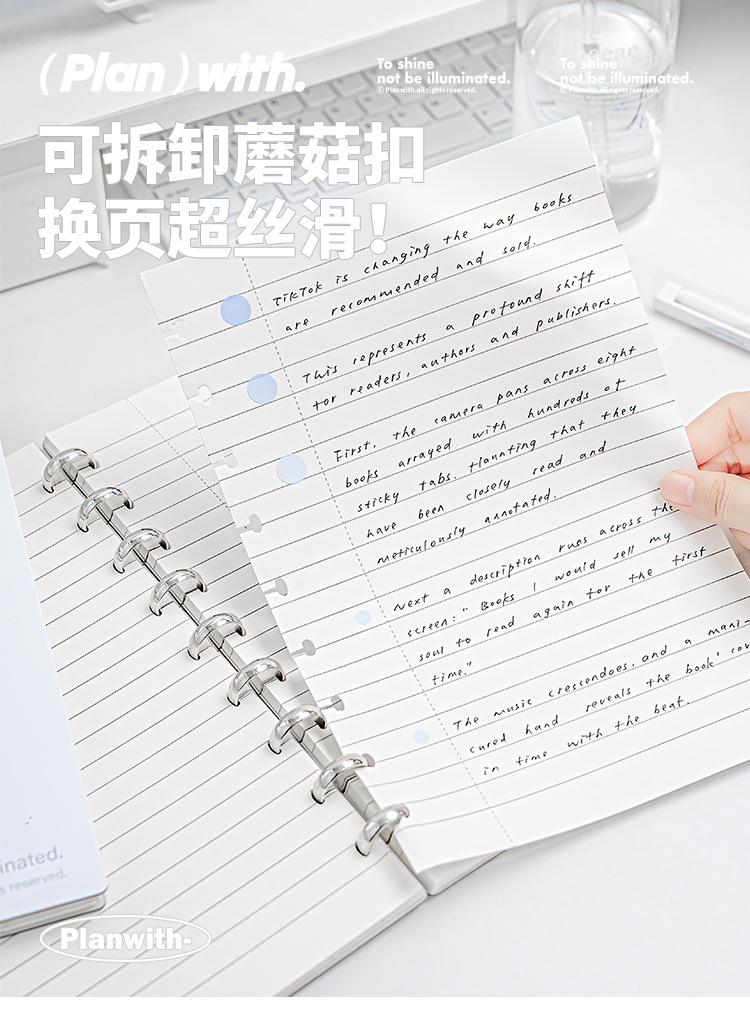 (Plan) with.
To shine
not be illuminated.
© Planwith.all rights reserved.
To shine
not be illuminated.
© Planwith.all rights reserved.
可拆卸蘑菇扣
换页超丝滑!
TikTok is changing the way books
are recommended and sold.
This represents a profound shift
for readers, authors and publishers.
First, the camera pans across eight
books arrayed with hundreds of
sticky tabs. Flaunting that they
have been closely read and
meticulously annotated.
Next a description runs across the
screen: " Books I would sell my
soul to read again for the first
time."
The music crescendoes, and a mani-
cured hand reveals the book' cov
in time with the beat.
inated.
s reserved.
Planwith-